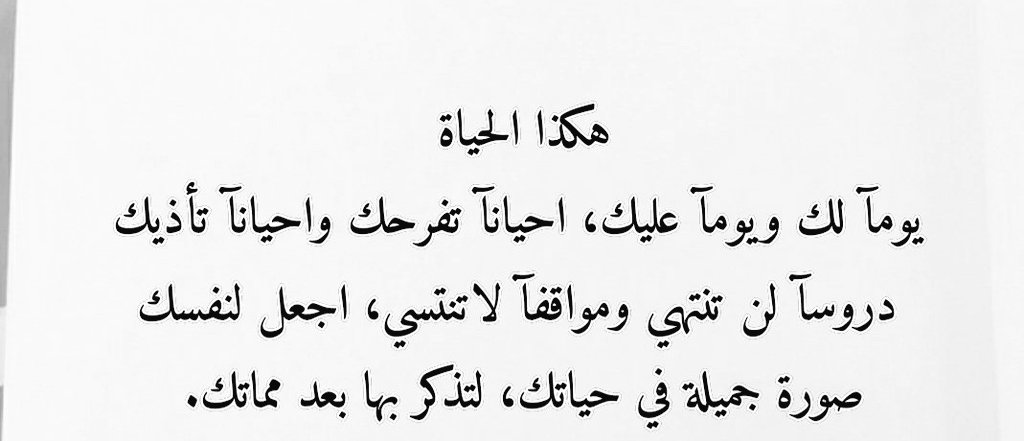 هكذا الحياة
يومآ لك ويومآ عليك، احيانآ تفرحك واحيانآ تأذيك
دروسآ لن تنتهي ومواقفآ لاتنتسي، اجعل لنفسك
صورة جميلة في حياتك، لتذكر بها بعد مماتك.